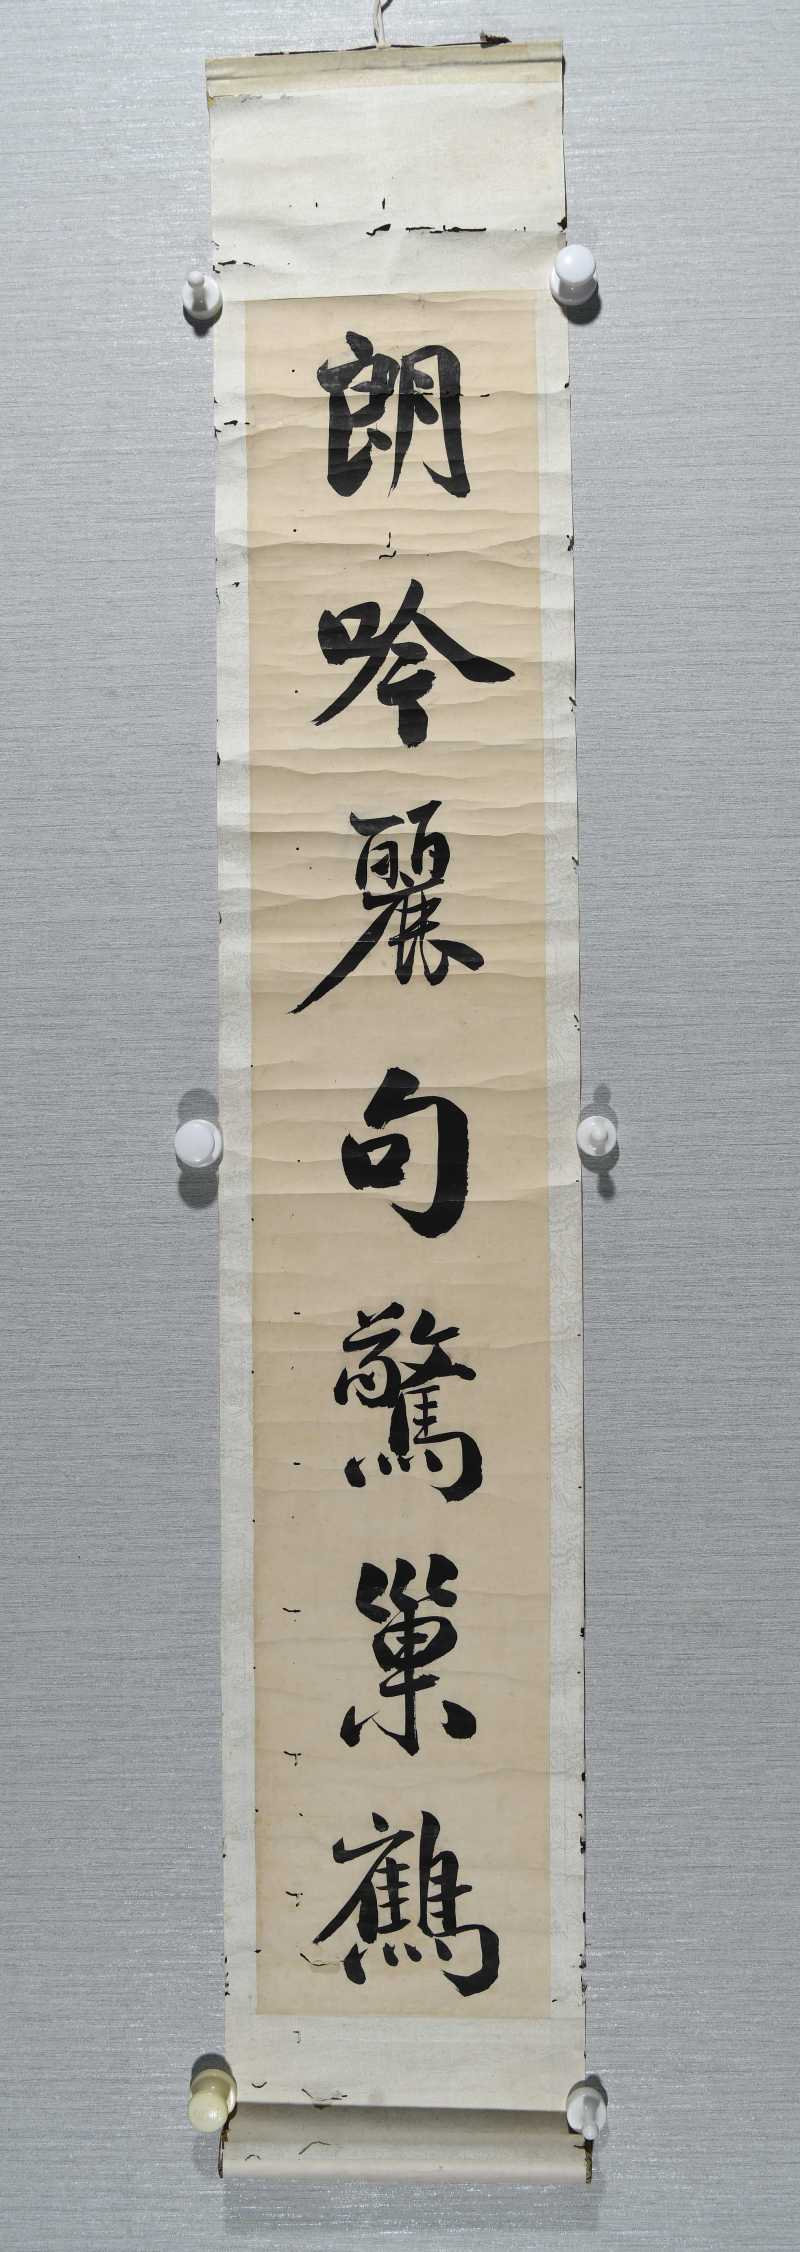 朗吟麗句驚巢鶴